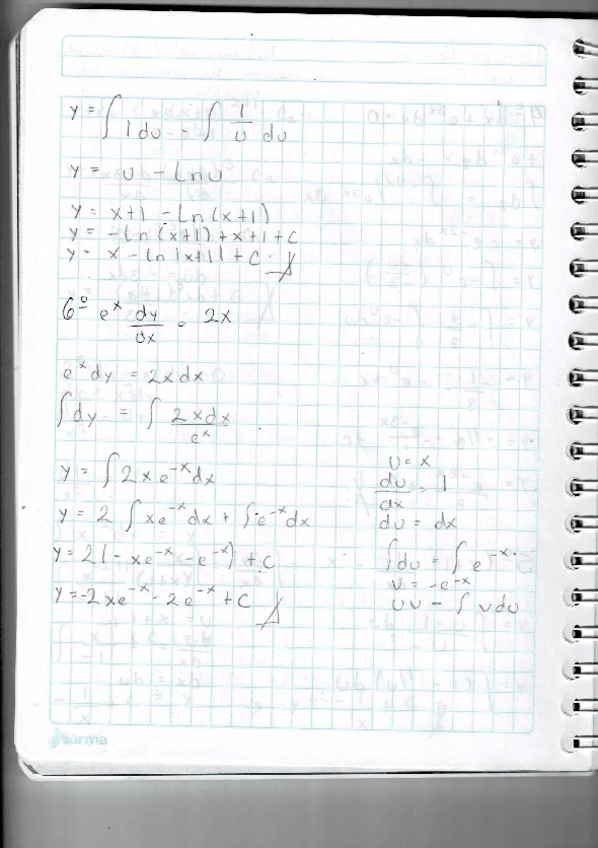 y = ∫ 1 du - ∫ 1/u du
y = u - Ln u
y = x+1 - Ln (x+1)
y = -Ln (x+1) + x+1 + C
y = x - Ln |x+1| + C
6º e^x dy/dx = 2x
e^x dy = 2x dx
∫ dy = ∫ 2xdx/e^x
y = ∫ 2x e^-x dx
y = 2 ∫ xe^-x dx + ∫ e^-x dx
y = 2(-xe^-x - e^-x) + C
y = -2xe^-x - 2e^-x + C
U = x
du/dx = 1
du = dx
∫ dv = ∫ e^-x
v = -e^-x
uv - ∫ v du
norma